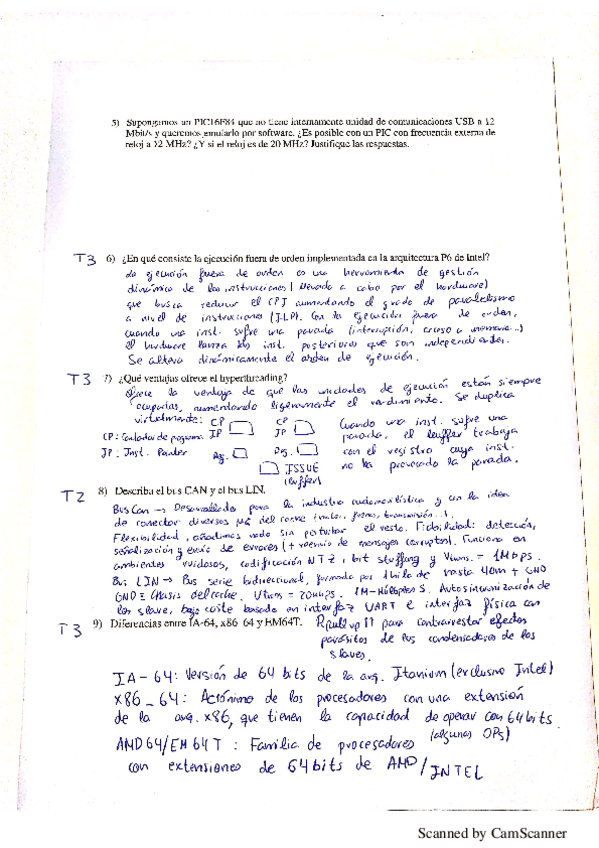 5) Supongamos un PIC16F84 que no tiene internamente unidad de comunicaciones USB a 12
Mbit/s y queremos emularlo por software. ¿Es posible con un PIC con frecuencia externa de
reloj a 12 MHz? ¿Y si el reloj es de 20 MHz? Justifique las respuestas.
T3 6) ¿En qué consiste la ejecución fuera de orden implementada en la arquitectura P6 de Intel?
La ejecución fuera de orden es una herramienta de gestión
dinámica de las instrucciones (llevada a cabo por el hardware)
que busca reducir el CPI aumentando el grado de paralelismo
a nivel de instrucciones (ILP). Con la ejecución fuera de orden,
cuando una inst. sufre una parada (interrupción, acceso a memoria...)
el hardware lanza las inst. posteriores que son independientes.
Se altera dinámicamente el orden de ejecución.
T3 7) ¿Qué ventajas ofrece el hyperthreading?
Ofrece la ventaja de que las unidades de ejecución están siempre
ocupadas, aumentando ligeramente el rendimiento. Se duplica
virtualmente: CP CP
CP: Contador de programa IP IP
IP: Inst. Pointer Reg. Reg.
ISSUE
(buffer)
Cuando una inst. sufre una
parada, el buffer trabaja
con el registro cuya inst.
no ha provocado la parada.
T2 8) Describa el bus CAN y el bus LIN.
Bus Can → Desarrollado para la industria automovilística y con la idea
de conectar diversos μC del coche (motor, frenos, transmisión...).
Flexibilidad, añadimos nodo sin perturbar el resto. Fiabilidad: detección,
señalización y envío de errores (+ reenvío de mensajes corruptos). Funciona en
ambientes ruidosos, codificación NTZ, bit stuffing y Vtrans. = 1Mbps.
Bus LIN → Bus serie bidireccional, formado por 1 hilo de hasta 40m + GND
GND ≡ chasis del coche. Vtrans = 20Kbps. 1M-Múltiples S. Autosincronización de
los slave, bajo coste basado en interfaz UART e interfaz física con
Rpull up ↑↑ para contrarrestar efectos
parásitos de los condensadores de los
slaves.
T3 9) Diferencias entre IA-64, x86-64 y EM64T.
IA-64: Versión de 64 bits de la arq. Itanium (exclusivo Intel)
X86_64: Acrónimo de los procesadores con una extensión
de la arq. x86, que tienen la capacidad de operar con 64 bits.
(algunas OPs)
AMD64/EM64T: Familia de procesadores
con extensiones de 64 bits de AMD/INTEL
Scanned by CamScanner